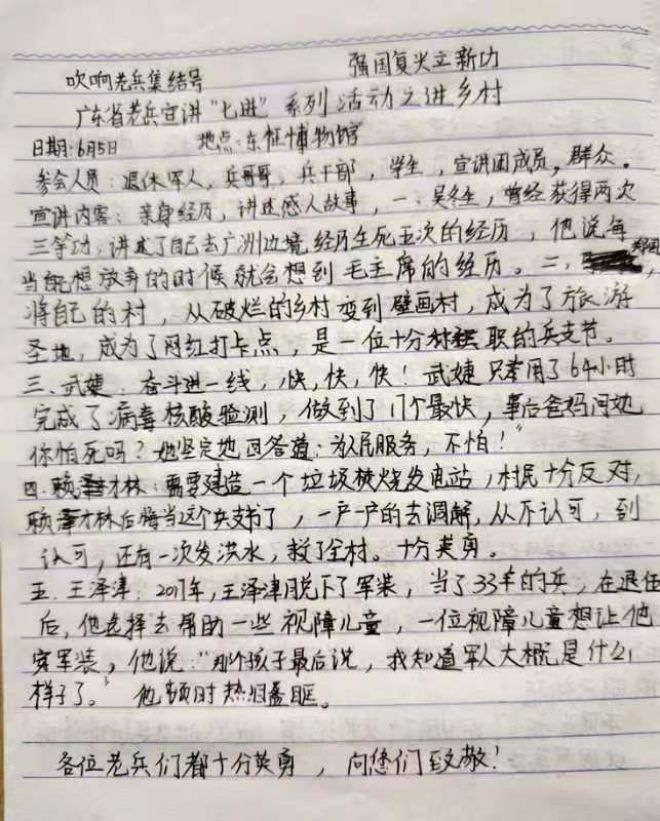 强国复兴立新功
吹响老兵集结号
广东省老兵宣讲“七进”系列活动之进乡村
日期:6月5日 地点:东征博物馆
参会人员:退休军人,兵哥哥,兵干部,学生,宣讲团成员,群众。
宣讲内容:亲身经历,讲述感人故事,一、吴冬生,曾经获得两次
三等功,讲述了自己去广洲边境经历生死五次的经历,他说每
当能想放弃的时候就会想到毛主席的经历。二、
将自己的村,从破烂的乡村变到壁画村,成为了旅游
圣地,成为了网红打卡点,是一位十分称职的兵支书。
三、武婕:奋斗进一线,快,快,快!武婕只用了64小时
完成了病毒核酸验测,做到了17个最快,事后爸妈问她
你怕死吗?她坚定地回答道:为人民服务,不怕!”
四、赖才林:需要建造一个垃圾焚烧发电站,村民十分反对,
赖才林后悔当这个兵支书了,一户一户的去调解,从不认可,到
认可,还有一次发洪水,救了全村。十分英勇。
五、王泽津:2017年,王泽津脱下了军装,当了33年的兵,在退伍
后,他选择去帮助一些视障儿童,一位视障儿童想让他
穿军装,他说:“那个孩子最后说,我知道军人大概是什么
样子了。”他顿时热泪盈眶。
各位老兵们都十分英勇,向您们致敬!